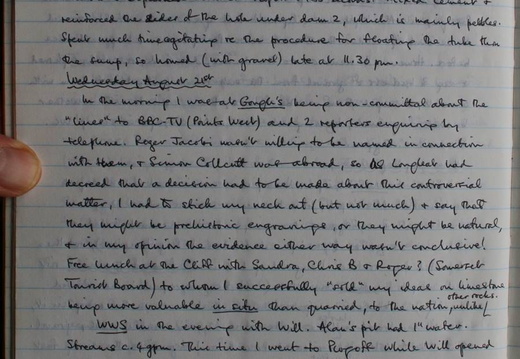 reinforced the sides of the hole under dam 2, which is mainly pebbles.
Spent much time agitating re the procedure for floating the tube thru
the sump, so homed (with gravel) late at 11.30 pm.
Wednesday August 21st
In the morning I was at Gough's being non-committal about the
"lines" to BBC-TV (Points West) and 2 reporters enquiring by
telephone. Roger Jacobi wasn't willing to be named in connection
with them, & Simon Collcutt was abroad, so as Longleat had
decreed that a decision had to be made about this controversial
matter, I had to stick my neck out (but not much) & say that
they might be prehistoric engravings, or they might be natural,
& in my opinion the evidence either way wasn't conclusive!
Free lunch at the Cliff with Sandra, Chris B & Roger ? (Somerset
Tourist Board) to whom I successfully "sold" my ideas on limestone
being more valuable in situ than quarried, to the nation, unlike/ other rocks.
WWS in the evening with Will. Alan's pit had 1" water.
Streams c. 4 gpm. This time I went to while Will opened